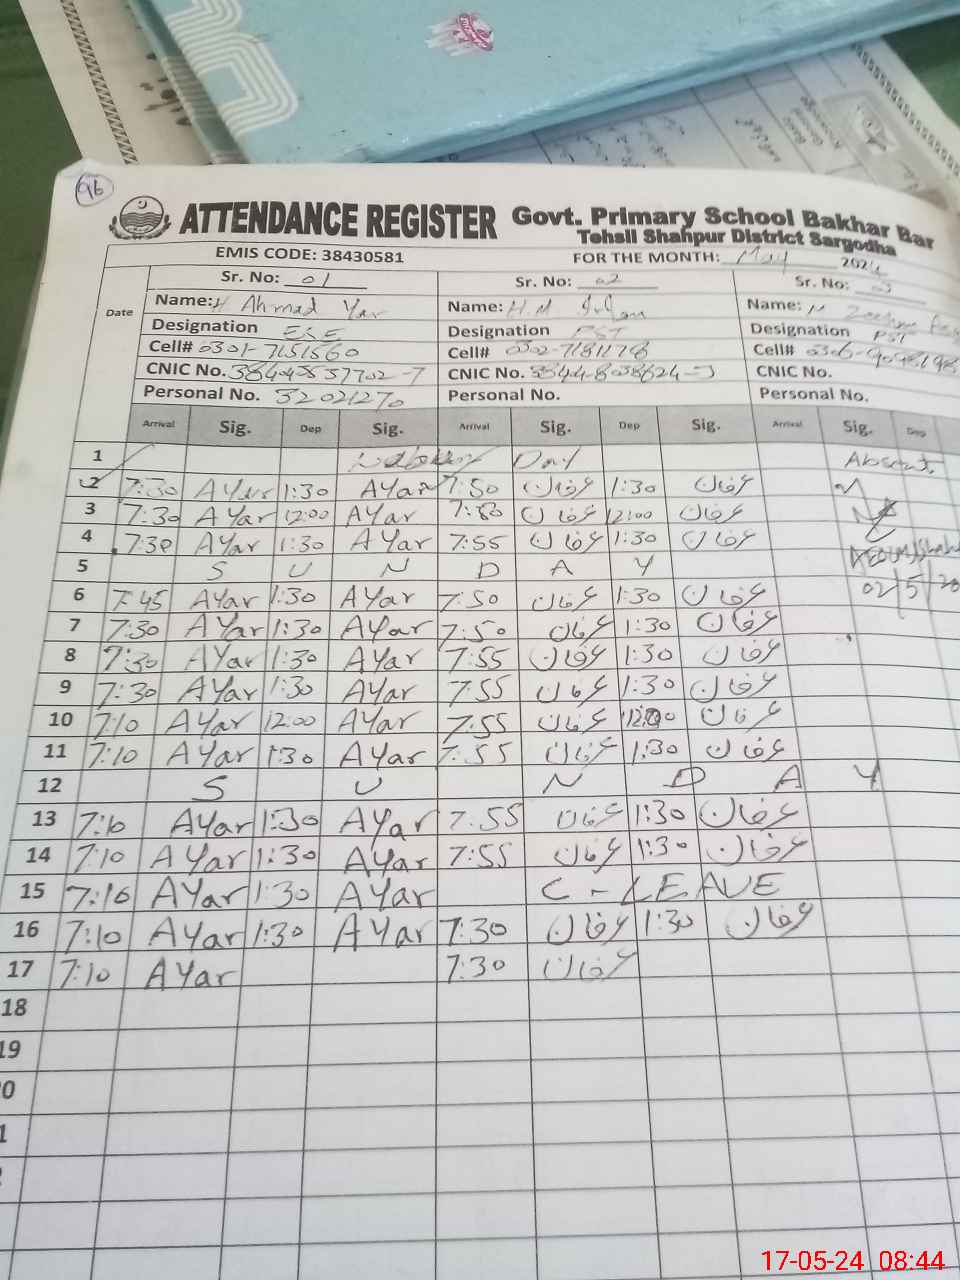 96
ATTENDANCE REGISTER Govt. Primary School Bakhar Bar
Tehsil Shahpur District Sargodha
EMIS CODE: 38430581 FOR THE MONTH: May 2024
Sr. No: 01 Sr. No: 02 Sr. No: 03
Date Name: H Ahmad Yar Name: H.M Name: M
Designation ESE Designation PST Designation PST
Cell# 0301-7151560 Cell# 0302-7181178 Cell#
CNIC No. CNIC No. CNIC No.
Personal No. 32021270 Personal No. Personal No.
Arrival Sig. Dep Sig. Arrival Sig. Dep Sig. Arrival Sig. Dep
1 Labour Day Absent
2 7:30 AYar 1:30 AYar 7:50 عفان 1:30 عفان
3 7:30 AYar 12:00 AYar 7:50 عفان 12:00 عفان
4 7:30 AYar 1:30 AYar 7:55 عفان 1:30 عفان
5 S U N D A Y
6 7:45 AYar 1:30 AYar 7:50 عفان 1:30 عفان 02/5/20
7 7:30 AYar 1:30 AYar 7:50 عفان 1:30 عفان
8 7:30 AYar 1:30 AYar 7:55 عفان 1:30 عفان
9 7:30 AYar 1:30 AYar 7:55 عفان 1:30 عفان
10 7:10 AYar 12:00 AYar 7:55 عفان 12:00 عفان
11 7:10 AYar 1:30 AYar 7:55 عفان 1:30 عفان
12 S U N D A Y
13 7:10 AYar 1:30 AYar 7:55 عفان 1:30 عفان
14 7:10 AYar 1:30 AYar 7:55 عفان 1:30 عفان
15 7:10 AYar 1:30 AYar C-LEAVE
16 7:10 AYar 1:30 AYar 7:30 عفان 1:30 عفان
17 7:10 AYar 7:30 عفان
18
19
0
1
17-05-24 08:44